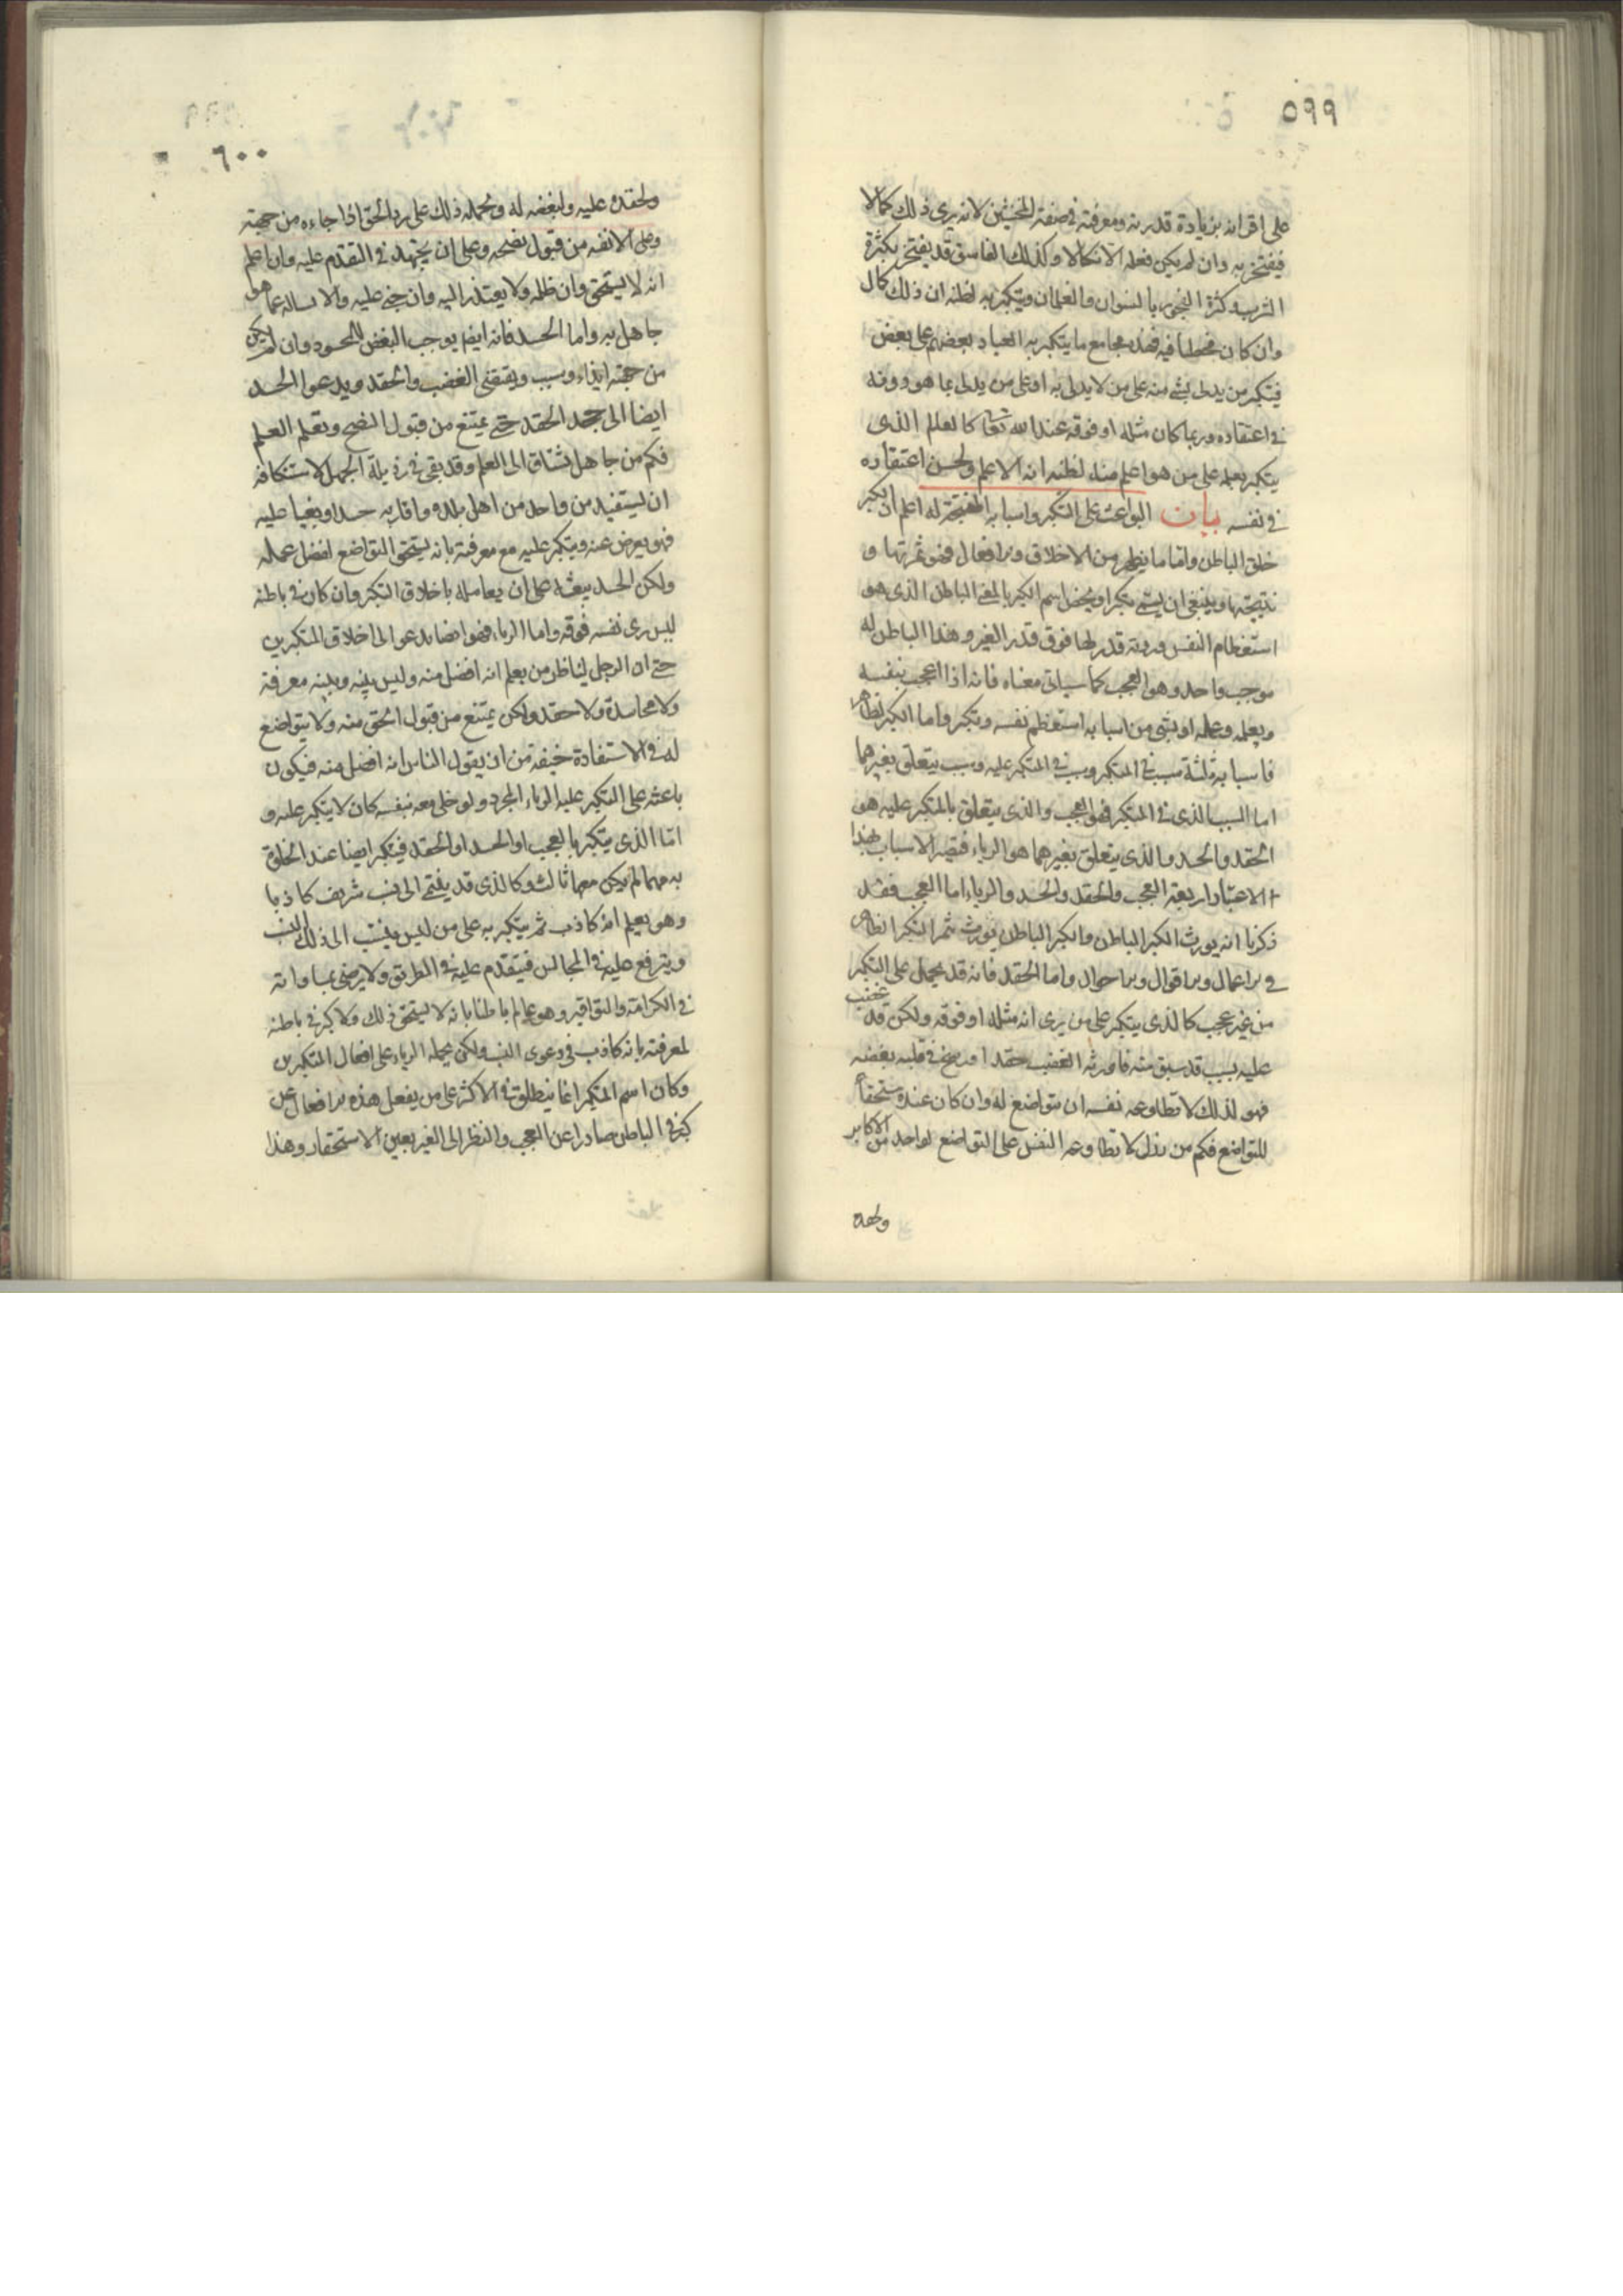 ٥٩٩
على اقرانه بزيادة قدرته ومعرفته في صنعة المخنثين لانه يرى ذلك كمالا
فيفتخر به وان لم يكن فعله الا نكالا وكذلك الفاسق قد يفتخر بكثرة
الشرب وكثرة الفجور بالنسوان والغلمان ويتكبر به لظنه ان ذلك كمال
وان كان مخطئا فيه فهذه مجامع ما يتكبر به العباد بعضهم على بعض
فيتكبر من يدلى بشئ منه على من لا يدلى به او على من يدلى بما هو دونه
في اعتقاده وربما كان مثله او فوقه عند الله تعا كالعالم الذى
يتكبر بعلمه على من هو اعلم منه لظنه انه الاعلم ولحسن اعتقاده
في نفسه بيان البواعث على التكبر واسبابه المهيجة له اعلم ان الكبر
خلق الباطن واما ما يظهر من الاخلاق والافعال فهو ثمرتها و
نتيجتها وينبغى ان يسمى تكبرا ويخص اسم الكبر بالمعنى الباطن الذى هو
استعظام النفس ورؤية قدر لها فوق قدر الغير وهذا الباطن له
موجب واحد وهو العجب كما سياتى معناه فانه اذا اعجب بنفسه
وبعلمه وعمله او بشى من اسبابه استعظم نفسه وتكبر واما الكبر الظاهر
فاسبابه ثلثة سبب في المتكبر وسبب في المتكبر عليه وسبب يتعلق بغيرهما
اما السبب الذى في المتكبر فهو العجب والذى يتعلق بالمتكبر عليه هو
الحقد والحسد والذى يتعلق بغيرهما هو الرياء فتصير الاسباب بهذا
الاعتبار اربعة العجب والحقد والحسد والرياء اما العجب فقد
ذكرنا انه يورث الكبر الباطن والكبر الباطن يورث ثمر التكبر الظاهر
في الاعمال والاقوال والاحوال واما الحقد فانه قد يحمل على التكبر
من غير عجب كالذى يتكبر على من يرى انه مثله او فوقه ولكن قد غضب
عليه بسبب قد سبق منه فاورثه الغضب حقدا ورسخ في قلبه بغضه
فهو لذلك لا تطاوعه نفسه ان يتواضع له وان كان عنده مستحقا
للتواضع فكم من رذل لا تطاوعه النفس على التواضع لواحد من الاكابر
ولحقده
٦٠٠
ولحقده عليه ولبغضه له ويحمله ذلك على رد الحق اذا جاءه من جهته
وعلى الانفه من قبول نصحه وعلى ان يجتهد في التقدم عليه وان علم
انه لا يستحق وان ظلمه ولا يعتذر اليه وان جنى عليه ولا يساله عما هو
جاهل به واما الحسد فانه ايضا يوجب البغض للمحسود وان لم يكن
من جهته ايذاء وسبب ويقتضى الغضب والحقد ويدعوا الحسد
ايضا الى جحد الحقد حتى يمتنع من قبول النصح وتعلم العلم
فكم من جاهل يشتاق الى العلم وقد بقى في رذيلة الجهل لاستنكافه
ان يستفيد من واحد من اهل بلده واقاربه حسدا وبغيا عليه
فهو يعرض عنه ويتكبر عليه مع معرفته بانه يستحق التواضع لفضل عمله
ولكن الحسد يبعثه على ان يعامله باخلاق التكبر وان كان في باطنه
ليس يرى نفسه فوقه واما الرياء فهو ايضا يدعوا الى اخلاق المتكبرين
حتى ان الرجل ليناظر من يعلم انه افضل منه وليس بينه وبينه معرفة
ولا محاسدة ولا حقد ولكن يمتنع من قبول الحق منه ولا يتواضع
له في الاستفادة خيفة من ان يقول الناس انه افضل منه فيكون
باعثه على التكبر عليه الرياء المجرد ولو خلى معه بنفسه كان لا يتكبر عليه و
اما الذى يتكبر بالعجب او الحسد او الحقد فيتكبر ايضا عند الخلق
به مهما لم يكن معهما ثالث وكالذى قد ينتمى الى نسب شريف كاذبا
وهو يعلم انه كاذب ثم يتكبر به على من ليس ينتسب الى ذلك النسب
ويترفع عليه في المجالس فيتقدم عليه في الطريق ولا يرضى بمساواته
في الكرامة والتواقير وهو عالم باطنا بانه لا يستحق ذلك ولا كبر في باطنه
لمعرفته بانه كاذب في دعوى النسب ولكن يحمله الرياء على افعال المتكبرين
وكان اسم المتكبر انما ينطلق في الاكثر على من يفعل هذه الافعال عن
كبر في الباطن صادرا عن العجب والنظر الى الغير بعين الاستحقار وهذا